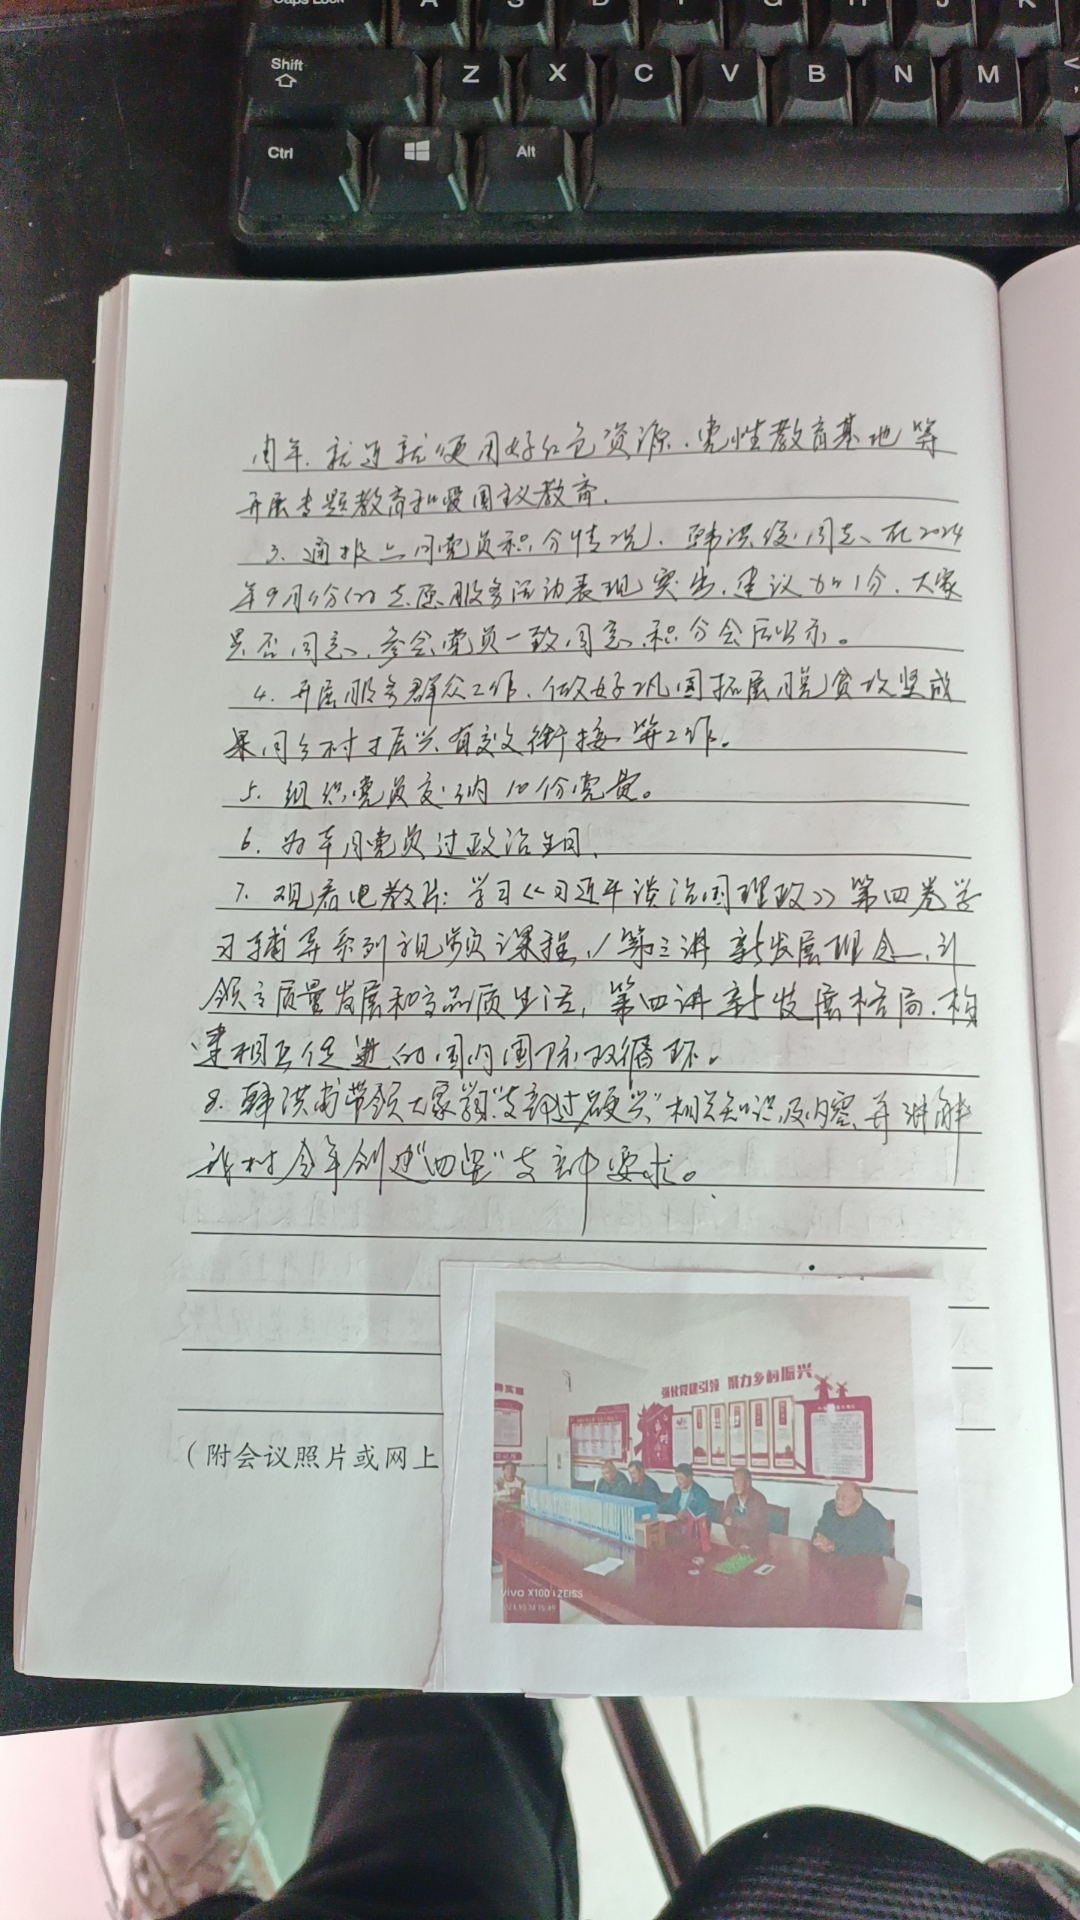 Caps Lock A S D F G H J K
Shift Z X C V B N M <
Ctrl Alt
周年、就近就便用好红色资源、党性教育基地等
开展专题教育和爱国主义教育。
3、通报上月党员积分情况、韩洪俊同志在2024
年9月份的志愿服务活动表现突出,建议加1分,大家
是否同意、参会党员一致同意、积分会后公示。
4、开展服务群众工作、做好巩固拓展脱贫攻坚成
果同乡村振兴有效衔接等工作。
5、组织党员交纳10份党费。
6、为本月党员过政治生日、
7、观看电教片:学习《习近平谈治国理政》第四卷学
习辅导系列视频课程,第三讲 新发展理念、引
领高质量发展和高品质生活,第四讲新发展格局、构
建相互促进的国内国际双循环。
8、韩洪 带领大家学习"支部过硬 "相关知识及内容,并讲解
我村今年创建"四强"支部要求。
(附会议照片或网上
强化党建引领 聚力乡村振兴
vivo X100 | ZEISS